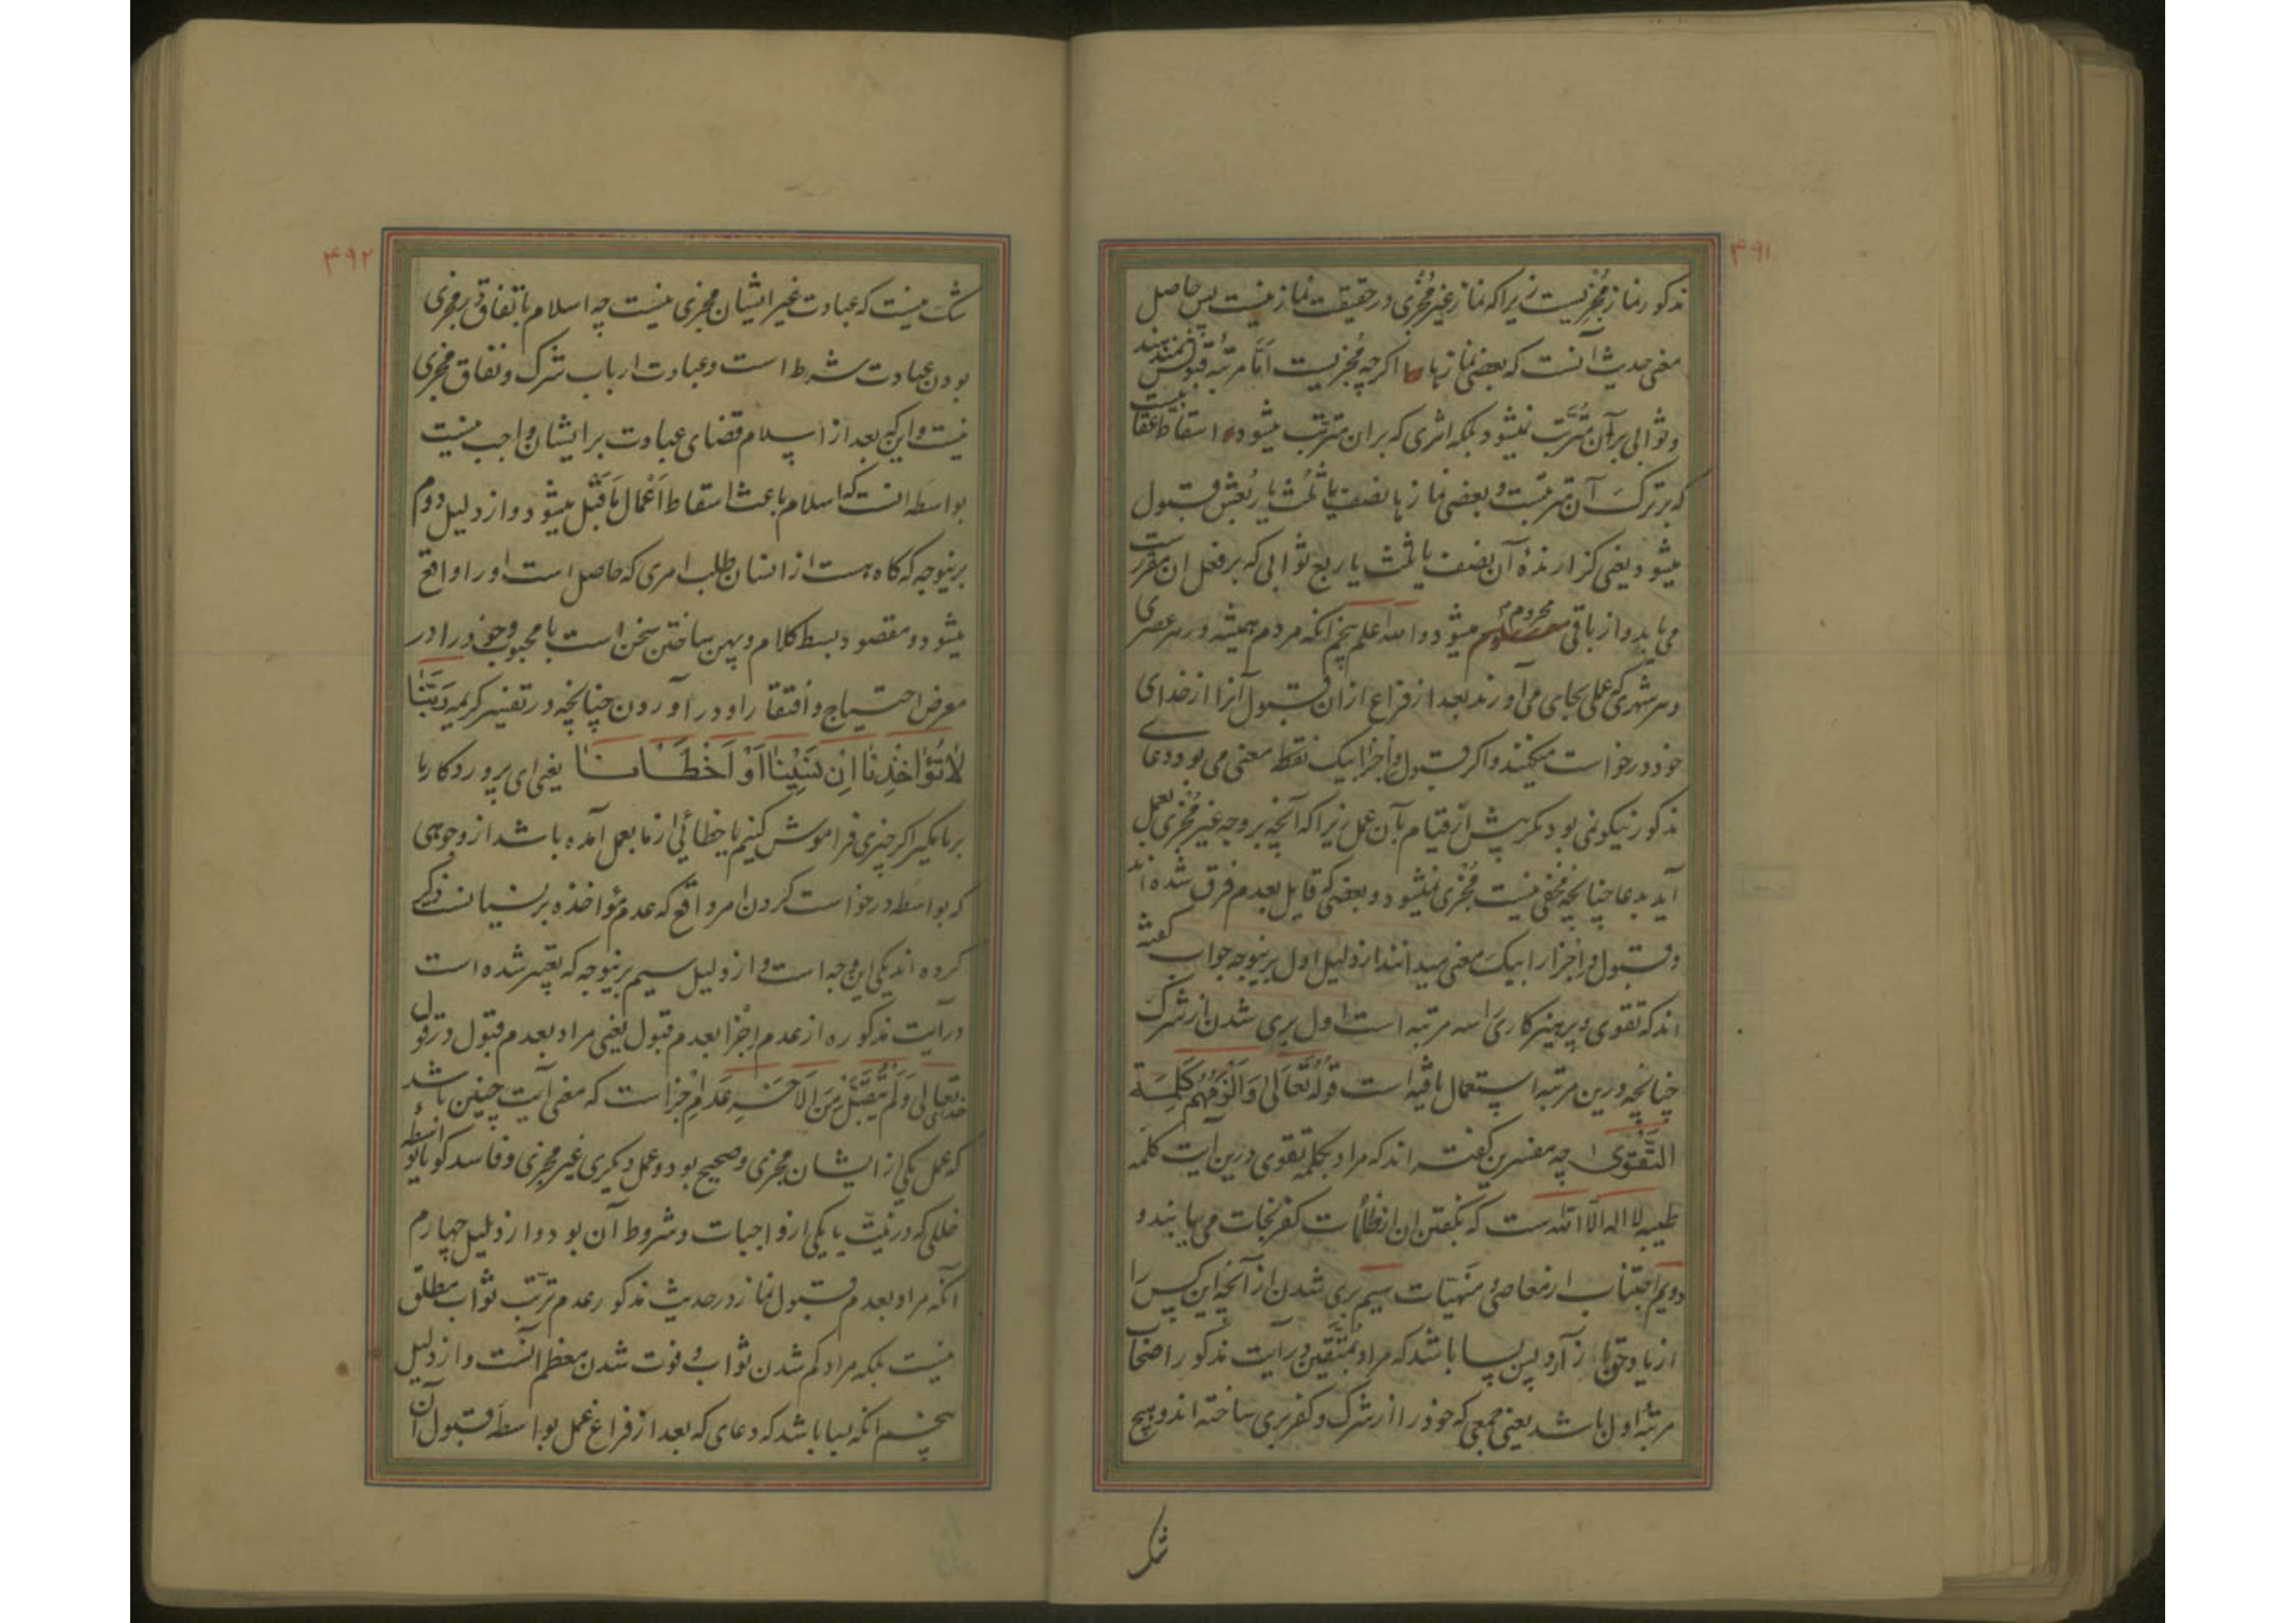 ۴۹۱
مذکور نماز مُجْزیست زیرا که نماز غیر مُجْزی در حقیقت نماز نیست پس حاصل
معنی حدیث آنست که بعضی نمازها اکرچه مُجْزیست اَمّا مرتبهٔ قبولش نمیدهند
و ثوابی بر آن مترتّب نمیشود بلکه اثری که بران مترتّب میشود اسقاط عقابیست
که بر ترک آن مترتبست و بعضی نمازها نصف یا ثُلُث یا رُبعش قبول
میشود یعنی کزارندهٔ آن نصف یا ثلث یا ربع ثوابی که بر فعل ان مقررست
می یابد و از باقی محروم میشود و الله اعلم پنجم انکه مردم همیشه در هر عصری
و هر شهری که عملی بجای می آورند بعد از فراغ ازان قبول آنرا از خدای
خود درخواست میکنند و اکر قبول و اجزا بیک نقطه معنی می بود دعای
مذکور نیکو نمی بود مکر پیش از قیام بآن عمل زیرا که آنچه بر وجه غیر مُجْزی بعمل
آید بدعا چنانچه مخفی نیست مُجْزی نمیشود و بعضی که قایل بعدم فرق شده اند
و قبول و اجزا را بیک معنی میدانند از دلیل اول برینوجه جواب کفته
اند که تقوی و پرهیزکاری را سه مرتبه است اول بری شدن از شرک
چنانچه درین مرتبه استعمال یافته است قولُه تَعَالی وَاَلْزَمَهُمْ کَلِمَةَ
التَّقْوی چه مفسرین کفته اند که مراد بکلمه تقوی درین آیت کلمه
طیبه لا اله الّا الله است که بکفتن ان از ظلمات کفر نجات می یابند و
دویم اجتناب از معاصی و منهیّات سیم بری شدن از آنچه این کس را
از یاد حق باز آرد پس میباید باشد که مراد بمتّقین در آیت مذکور اصحاب
مرتبهٔ اول باشد یعنی جمعی که خود را از شرک و کفر بری ساخته اند و هیچ
شک
۴۹۲
شک نیست که عبادت غیر ایشان مجزی نیست چه اسلام باتفاق در مجزی
بودن عبادت شرط است و عبادت ارباب شرک و نفاق مجزی
نیست و این که بعد از اسلام قضای عبادت بر ایشان واجب نیست
بواسطه انست که اسلام باعث اسقاط اَعْمال ماقَبْل میشود و از دلیل دوم
برینوجه که کاه هست از انسان طلب امری که حاصل است او را واقع
میشود و مقصود بسط کلام و پهن ساختن سخن است با محبوب و خود را در
معرض احتیاج و افتقار او در آوردن چنانچه در تفسیر کریمه رَبَّنا
لا تُؤاخِذْنا اِنْ نَسِیْنا اَوْ اَخْطَانا یعنی ای پروردکار ما
بر ما مکیر اکر چیزی فراموش کنیم یا خطائی از ما بعمل آمده باشد از وجوهی
که بواسطه درخواست کردن امر واقع که عدم مؤاخذه بر نسیانست ذکر
کرده اند یکی این وجه است و از دلیل سیم برینوجه که تعبیر شده است
در آیت مذکوره از عدم اِجْزا بعدم قبول یعنی مراد بعدم قبول در قول
خدایتعالی وَلَمْ یُتَقَبَّلْ مِنَ الآخَرِ عَدَمِ اِجْزا است که معنی آیت چنین باشد
که عمل یکی از ایشان مجزی و صحیح بود و عمل دیکری غیر مجزی و فاسد کویا بواسطهٔ
خللی که در نیّت یا یکی از واجبات و شروط آن بود و از دلیل چهارم
آنکه مراد بعدم قبول نماز در حدیث مذکور عدم ترتّب ثواب مطلق
نیست بلکه مراد کم شدن ثواب و فوت شدن معظم انست و از دلیل
پنجم انکه میباید باشد که دعای که بعد از فراغ عمل بواسطه قبول آن